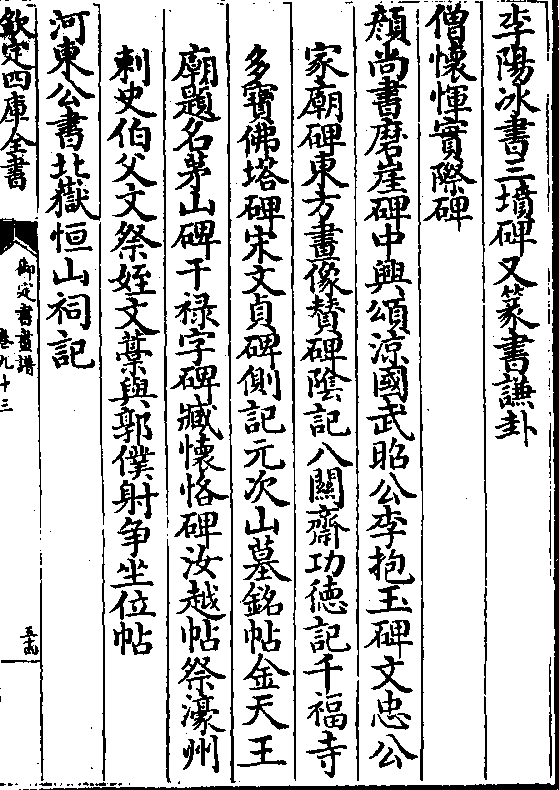 李陽冰書三墳碑又篆書謙卦
僧懷惲實際碑
顔尚書磨崖碑中興頌涼國武昭公李抱玉碑文忠公
家廟碑東方畫像賛碑隂記八關齋功徳記千福寺
多寳佛塔碑宋文貞碑側記元次山墓銘帖金天王
廟題名茅山碑干禄字碑臧懷恪碑汝越帖祭濠州
刺史伯父文祭姪文藁與郭僕射争坐位帖
河東公書北嶽恒山祠記
欽定四庫全書
御定書畫譜
卷九十三